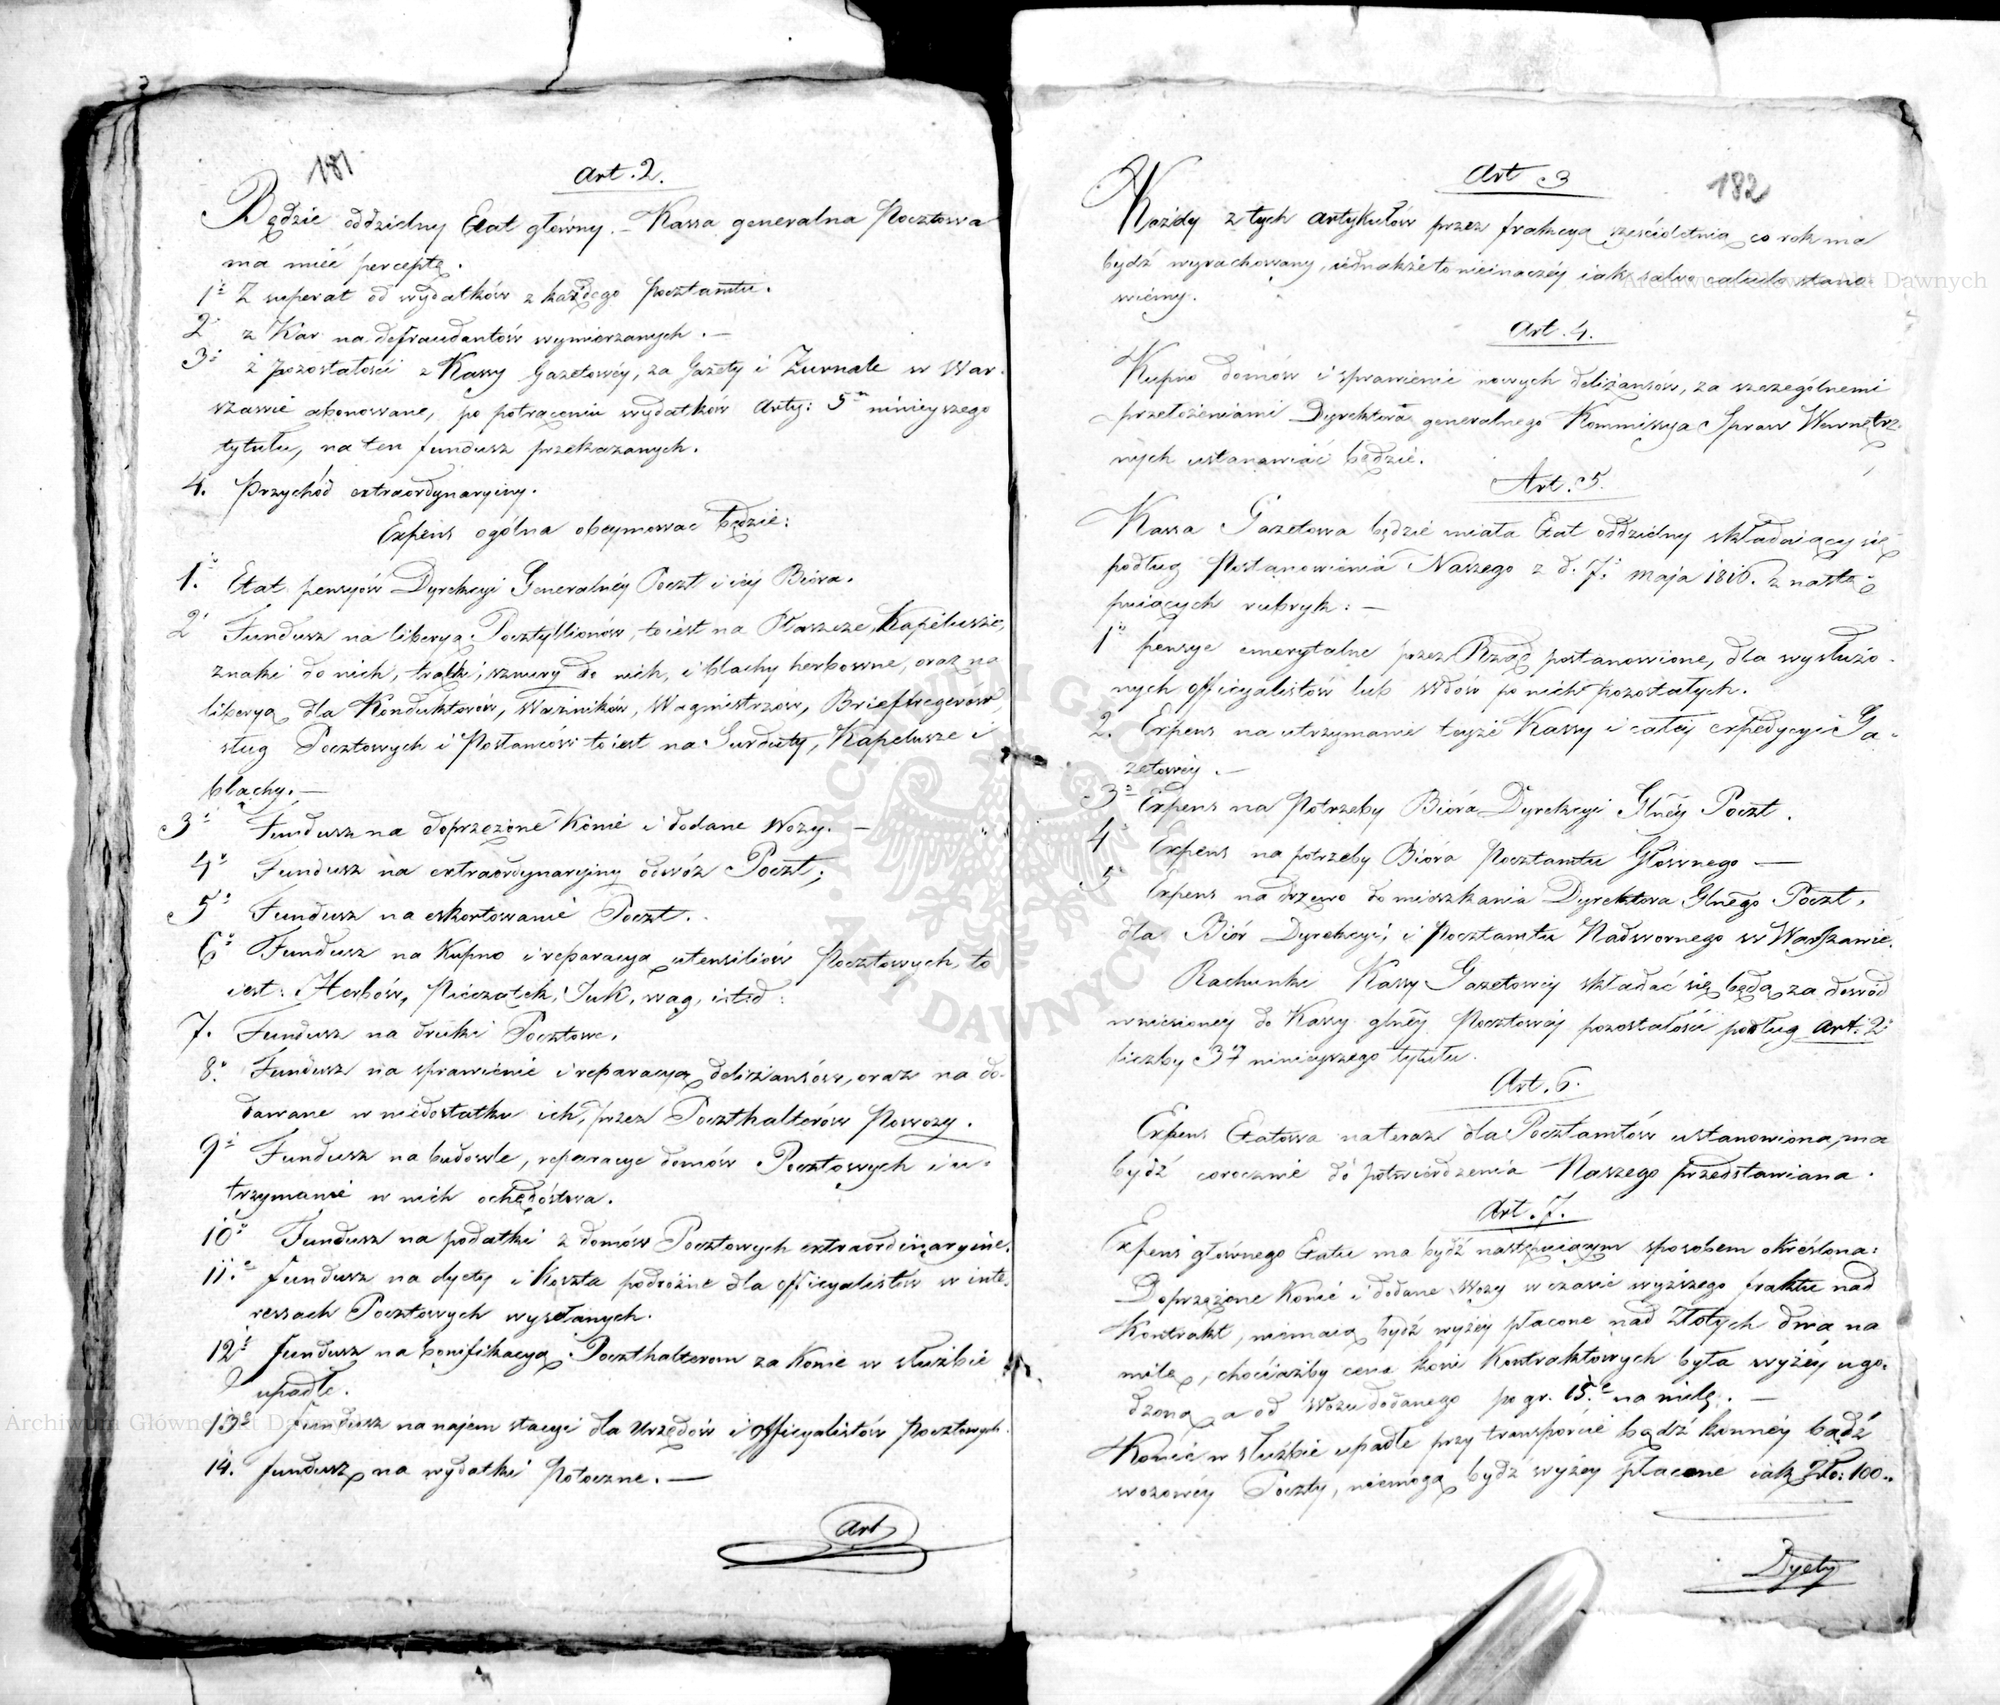 181
Art. 2.
Będzie oddzielny Etat główny. – Kassa generalna Pocztowa
ma mieć perceptę.
1° Z superat od wydatków z każdego Pocztamtu.
2° z Kar na defraudantów wymierzanych. –
3° z pozostałości z Kassy Gazetowéy, za Gazety i Żurnale w War-
szawie abonowane, po potrąceniu wydatków Arty: 5m ninieyszego
tytułu, na ten fundusz przekazanych.
4. Przychód extraordynaryiny.
Expens ogólna obeymować będzie:
1.° Etat pensyów Dyrekcyi Generalnéy Poczt i iéy Bióra.
2° Fundusz na liberyą Pocztyllionów, to iest na Płaszcze, Kapelusze,
znaki do nich, trąbki, sznury do nich, i blachy herbowne, oraz na
liberyą dla Konduktorów, Woźników, Wagmistrzów, Brieftregerów,
sług Pocztowych i Posłańców to iest na Surduty, Kapelusze i
blachy. –
3° Fundusz na doprzężone Konie i dodane Wozy. –
4° Fundusz na extraordynaryiny odwóz Poczt;
5° Fundusz na eskortowanie Poczt.
6° Fundusz na Kupno i reparacyą utensiliów Pocztowych, to
iest: Herbów, Pieczątek, Juk, wag, i t. d:
7. Fundusz na druki Pocztowe.
8.° Fundusz na sprawienie i reparacyą deliżansów, oraz na do-
dawane w niedostatku ich, przez Poczthalterów Powozy.
9° Fundusz na budowle, reparacye domów Pocztowych i u-
trzymanie w nich ochędóstwa.
10° Fundusz na podatki z domów Pocztowych extraordinaryine.
11.° fundusz na dyety i Koszta podróżne dla Officyalistów w inte-
ressach Pocztowych wysłanych.
12° fundusz na bonifikacyą Poczthalterom za Konie w służbie
upadłe.
13° fundusz na najem stacyi dla Urzędów i Officyalistów Pocztowych.
14. fundusz na wydatki Potoczne. –
Art
182
Art 3
Każdy z tych artykułów przez frakcyą sześcioletnią co rok ma
bydź wyrachowany, iednakże to nieinaczéy iak salvo calculo stano-
wiemy.
Art. 4.
Kupno domów i sprawienie nowych deliżansów, za szczególnemi
przełożeniami Dyrektora generalnego Kommissya Spraw Wewnętrz-
nych ustanawiać będzie.
Art. 5.
Kassa Gazetowa będzie miała Etat oddzielny składaiący się
podług Postanowienia Naszego z d. 7. maja 1816. z nastę-
puiących rubryk: –
1° pensye emerytalne przez Rząd postanowione, dla wysłużo-
nych officyalistów lub wdów po nich pozostałych.
2. Expens na utrzymanie teyże Kassy i całéj expedycyi Ga-
zetowéy. –
3° Expens na Potrzeby Bióra Dyrekcyi Glnéy Poczt.
4° Expens na potrzeby Bióra Pocztamtu Głównego –
5° Expens na drzewo do mieszkania Dyrektora Glnego Poczt,
dla Biór Dyrekcyi, i Pocztamtu Nadwornego w Warszawie.
Rachunki Kassy Gazetowéy składać się będą za dowód
wniesionéy do Kassy glnéy Pocztowéy pozostałości podług Art: 2°
liczby 3° ninieyszego tytułu.
Art. 6.
Expens Etatowa na teraz dla Pocztamtów ustanowiona, ma
bydź corocznie do potwierdzenia Naszego przedstawiana.
Art. 7.
Expens głównego Etatu ma bydź następuiącym sposobem określona:
Doprzężone Konie i dodane Wozy w czasie wyższego fraktu nad
Kontrakt, niemaią bydź wyżéy płacone nad Złotych dwa na
milę, chociażby cena koni Kontraktowych była wyżéy ugo-
dzona, a od wozu dodanego po gr. 15. na milę. –
Konie w służbie upadłe przy transporcie bądź konnéy bądź
wozowéy Poczty, niemogą bydź wyżéy płacone iak Złp: 100.
Dyety
Archiwum Główne Akt Dawnych
Archiwum Główne Akt Dawnych
ARCHIWUM GŁÓWNE AKT DAWNYCH